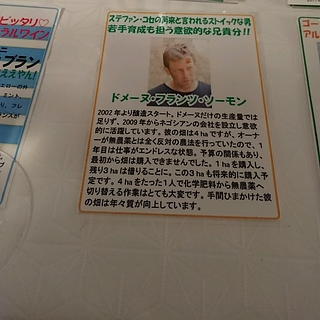 ステファン・コセの再来と言われるストイックな男
若手育成も担う意欲的な兄貴分!!
ドメーヌ・フランツ・ソーモン
2002年より醸造スタート。ドメーヌだけの生産量では
足りず、2009年からネゴシアンの会社を設立し意欲
的に活躍しています。彼の畑は4haですが、オーナ
ーが無農薬とは全く反対の農法を行っていたので、1
年目は仕事がエンドレスな状態。予算の関係もあり、
最初から畑は購入できませんでした。1haを購入し、
残り3haは借りることに。この3haも将来的に購入予
定です。4haをたった1人で化学肥料から無農薬へ
切り替える作業はとても大変です。手間ひまかけた彼
の畑は年々質が向上しています。
ピッタリ♡
ラルワイン
ブラン
ええやん!